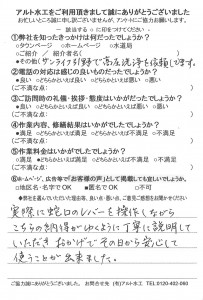 アルト水工をご利用頂きまして誠にありがとうございました
お忙しいところ誠に申し訳ございませんが、アンケートにご協力お願いします。
― 該当する○に印をつけてください ―
①弊社を知ったきっかけは何だったでしょうか?
○タウンページ ○ホームページ ○水道局
○ご紹介 ご紹介者名( )
●その他( で高圧洗浄を依頼して)
②電話の対応は感じの良いものだったでしょうか?
○良い ○どちらかといえば良い ○どちらかといえば悪い ○悪い
③ご訪問時の礼儀・挨拶・態度はいかがだったでしょうか?
●満足 ○どちらかといえば満足 ○どちらかといえば不満足 ○不満足
④作業内容、修繕結果はいかがだったでしょうか?
○満足 ○どちらかといえば満足 ○どちらかといえば不満足 ○不満足
⑤作業料金はいかがでしたでしょうか?
○満足 ●どちらかといえば満足 ○どちらかといえば不満足 ○不満足
⑥ホームページ、広告等で「お客様の声」として掲載しても宜しいでしょうか。
○地区名・名字でOK ●匿名でOK ○不可
●弊社を選んでいただいた理由、良い点・悪い点、ご意見ご感想をお聞かせください
実際に蛇口のレバーを操作しながら
こちらの納得がゆくように丁寧に説明して
いただき おかげでその日から安心して
使うことが出来ました。
ご協力誠にありがとうございました。 お問合せ先 (有)アルト水工 TEL.0120-402-093